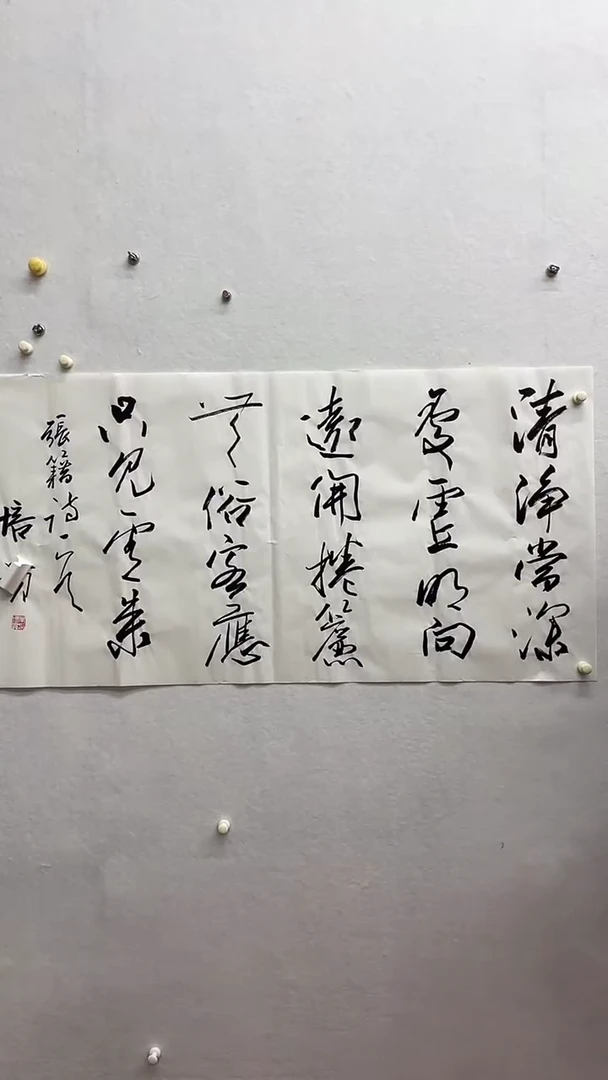 清淨當深
處虛明向
遠開捲簾
無俗客應
只見雲來
張籍詩一首
培